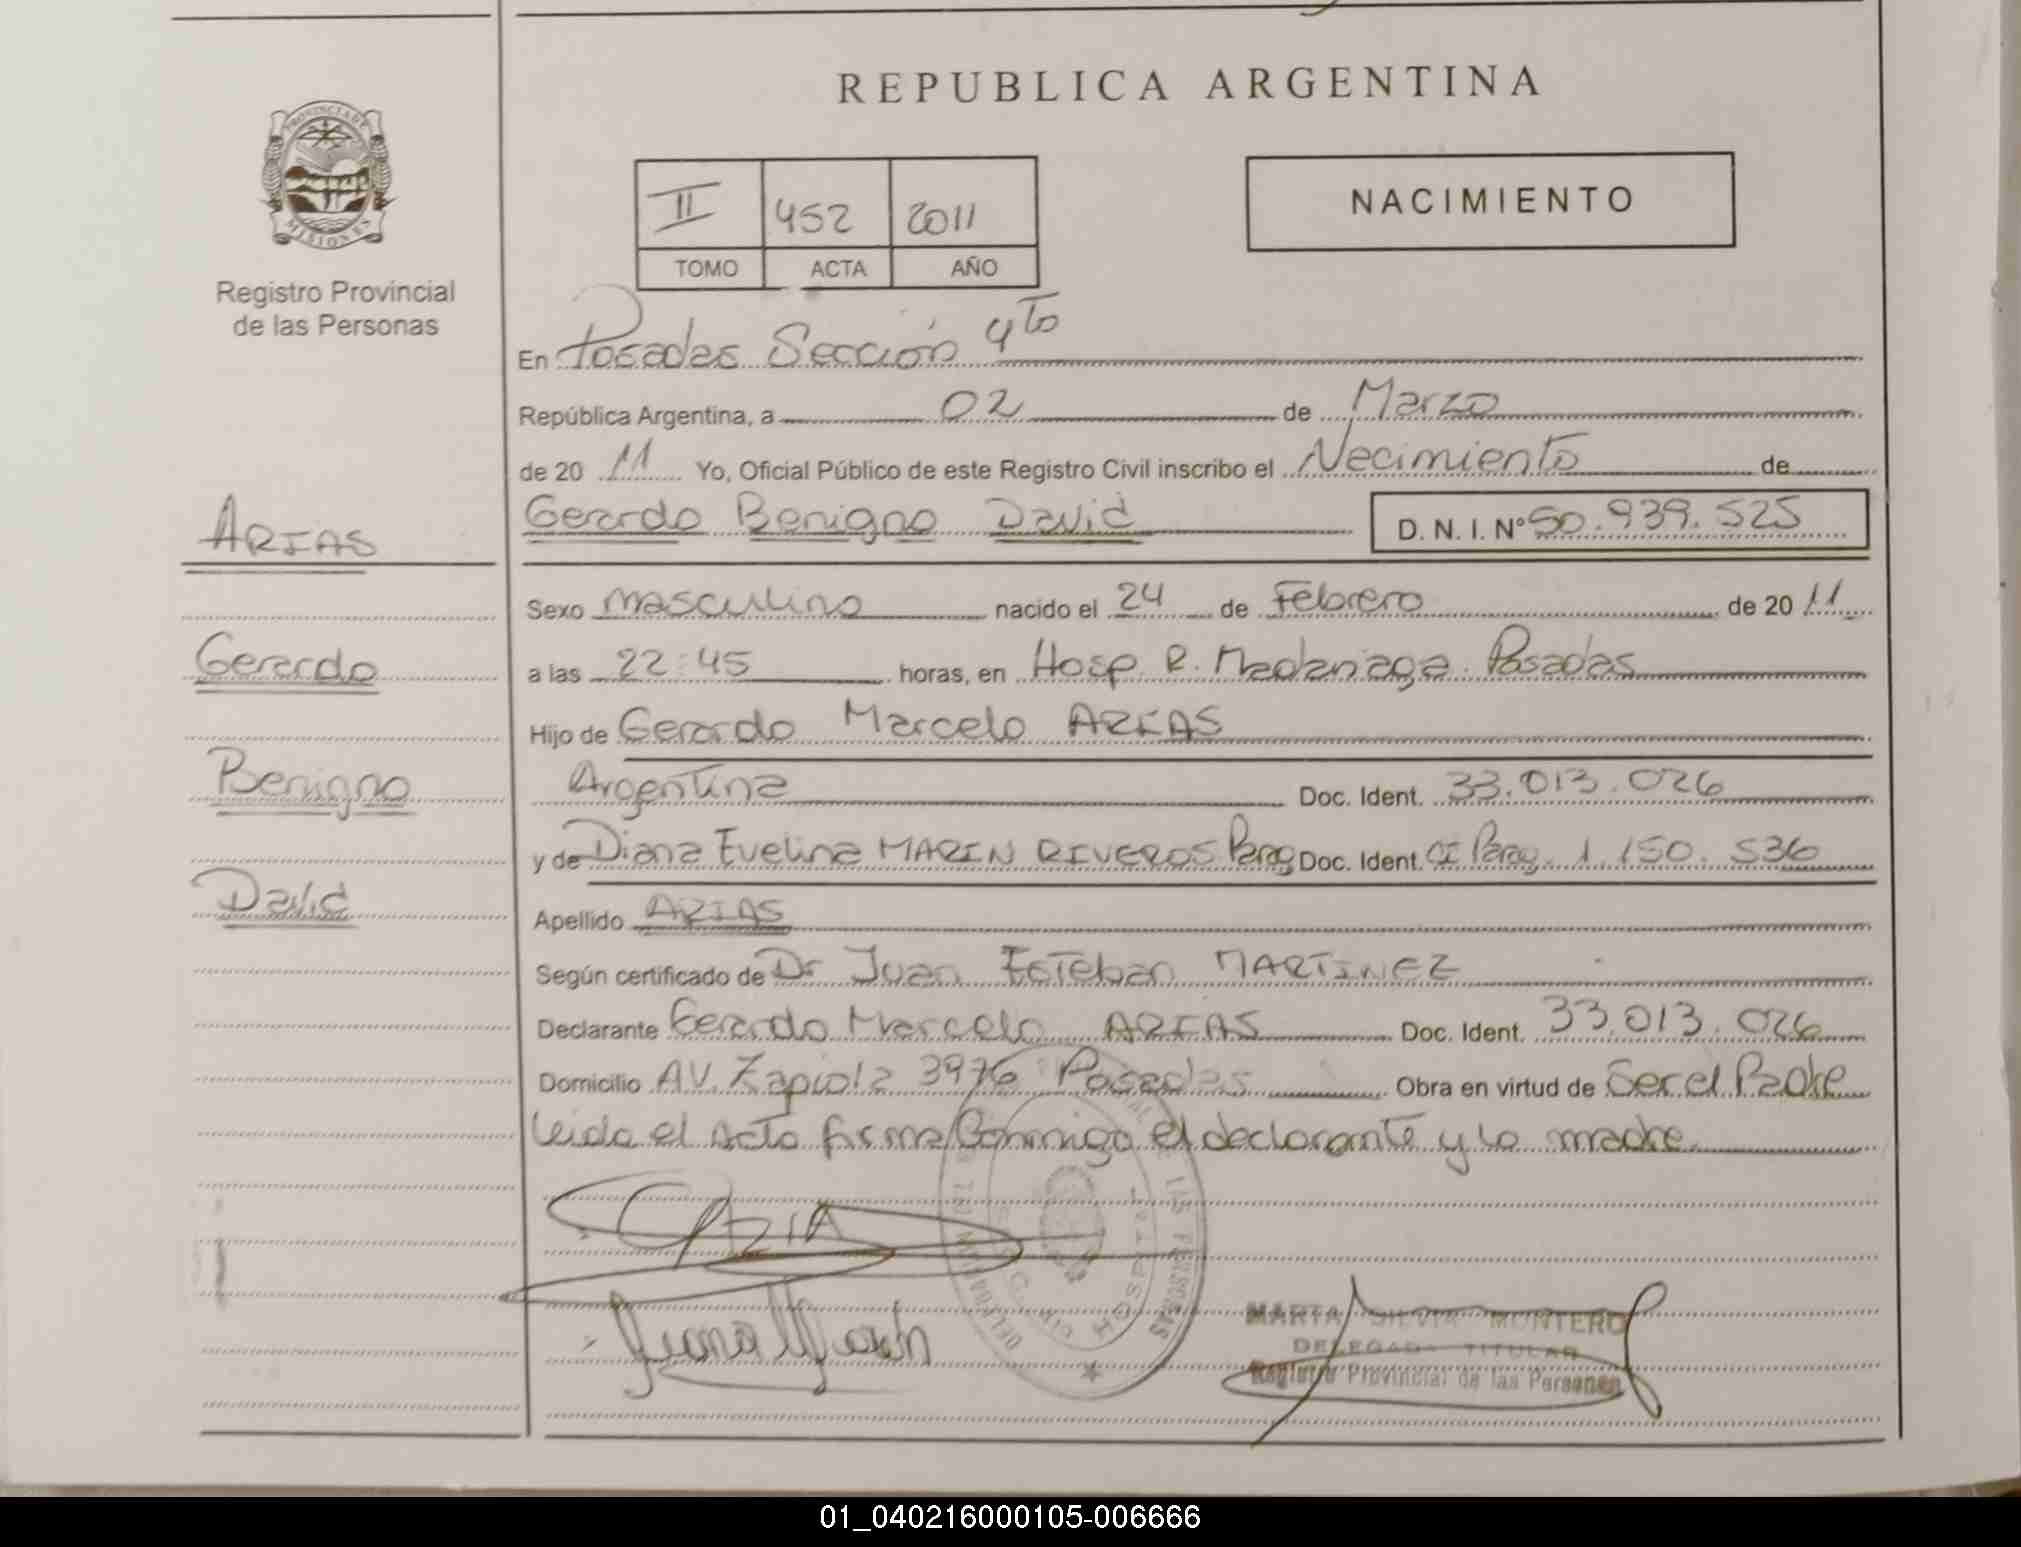 REPUBLICA ARGENTINA
PROVINCIA DE
MISIONES
Registro Provincial
de las Personas
II 452 2011
TOMO ACTA AÑO
NACIMIENTO
En Posadas Sección 4to
República Argentina, a 02 de Marzo
de 20 11 Yo, Oficial Público de este Registro Civil inscribo el Nacimiento de
ARIAS
Gerardo Benigno David D. N. I. Nº 50.939.525
Sexo masculino nacido el 24 de Febrero de 20 11
Gerardo
a las 22:45 horas, en Hosp R. Madariaga Posadas
Hijo de Gerardo Marcelo ARIAS
Benigno
Argentina Doc. Ident. 33.013.026
y de Diana Evelina MARIN RIVEROS Parag Doc. Ident. CI Parag. 1.150.536
David
Apellido ARIAS
Según certificado de Dr Juan Esteban MARTINEZ
Declarante Gerardo Marcelo ARIAS Doc. Ident. 33.013.026
Domicilio AV. Zapiola 3976 Posadas Obra en virtud de Ser el Padre
leida el acta firma Conmigo el declarante y la madre
MARTA SILVIA MONTERO
DELEGADA TITULAR
Registro Provincial de las Personas
01_040216000105-006666